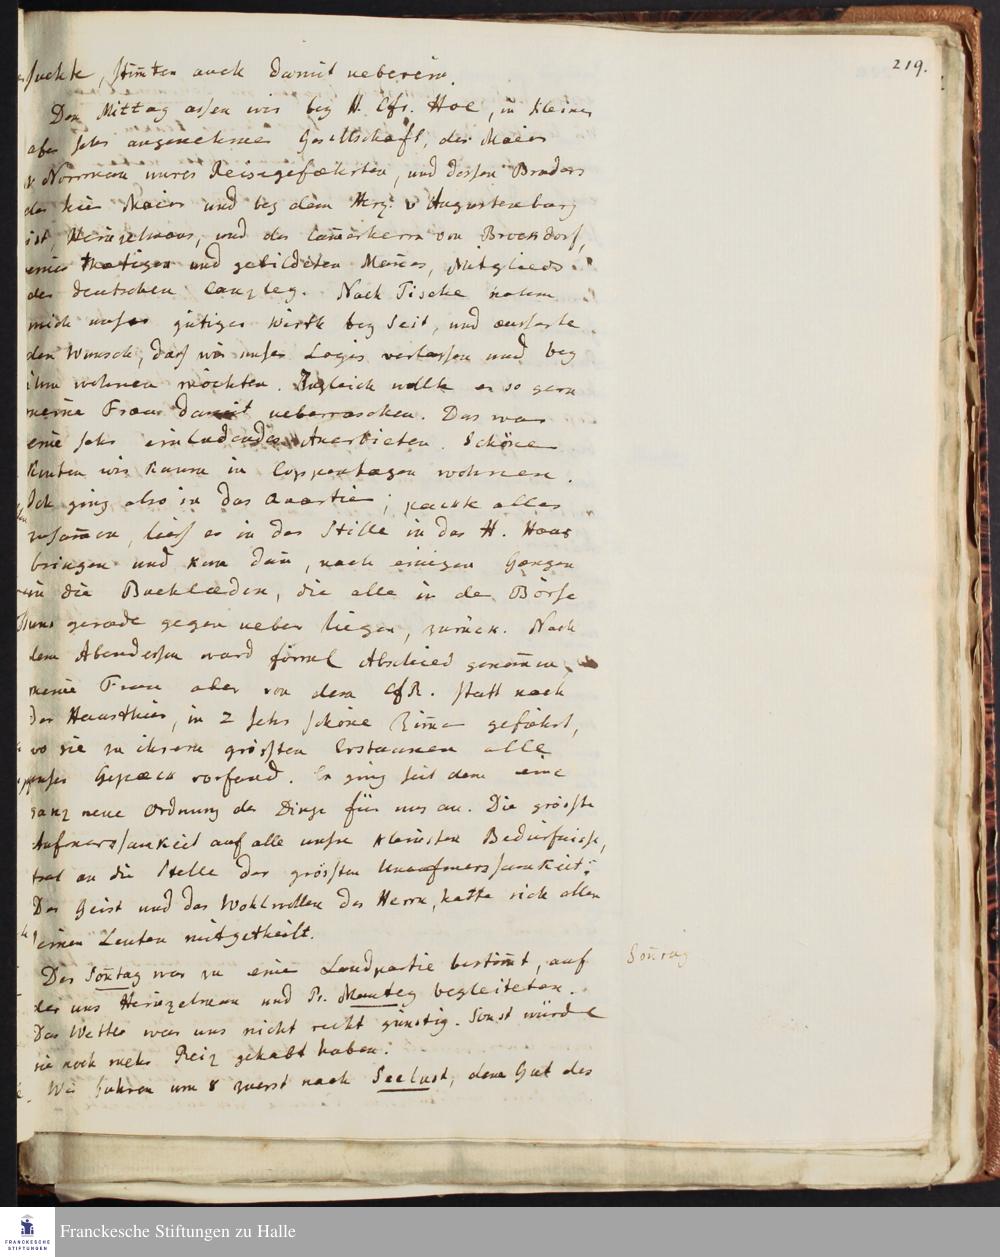 219.
suchte, stim̄ten auch damit ueberein.
Den Mittag assen wir bey H. Cfr. Hoe, in kleiner
aber sehr angenehmer Gesellschaft, der Maior
v Norrman unres Reisegefæhrten, und dessen Bruders
der hier Maior und bey dem Herz. v Augustenburg
ist, Heinzelmans, und des Cam̄erherrn von Brockdorf,
eines thætigen und gebildeten Man̄es, Mitglieds
der deutschen Canzley. Nach Tische nahm
mich unser gütiger Wirth bey Seit, und æusserte
den Wunsch, dass wir unser Logis verlassen und bey
ihm wohnen möchten. Zugleich wollte er so gern
meine Frau damit ueberraschen. Das war
eine sehr einladendes Anerbieten. Schöner
kon̄ten wir kaum in Coppenhagen wohnen.
Ich ging also in das Quartier; packte alles
zusam̄en, liess es in der Stille in das H. Haus
bringen und kam dan̄, nach einigen Gængen
in die Buchlæden, die alle in der Börse
uns gerade gegen ueber liegen, zurück. Nach
dem Abendessen ward förml Abschied genom̄en,
meine Frau aber von dem CfR. statt nach
der Hausthür, in 2 sehr schöne Zim̄er geführt,
wo sie zu ihrem grössten Erstaunen alle
unser Gepæck vorfand. Er ging seit dem eine
ganz neue Ordnung der Dinge für uns an. Die grösste
Aufmerksamkeit auf alle unsre kleinsten Bedürfnisse,
trat an die Stelle der grössten Unaufmerksamkeit;
Der Geist und das Wohlwollen des Herrn, hatte sich allen
seinen Leuten mitgetheilt.
Der Son̄tag war zu einer Landpartie bestim̄t, auf
der uns Heinzelman und Pr. Manthey begleiteten.
Das Wetter war uns nicht recht günstig. Sonst würde
sie noch mehr Reiz gehabt haben.
Wir fuhren um 8 zuerst nach Seelust, dem Gut des
Son̄tag
Franckesche Stiftungen zu Halle
FRANCKESCHE STIFTUNGEN